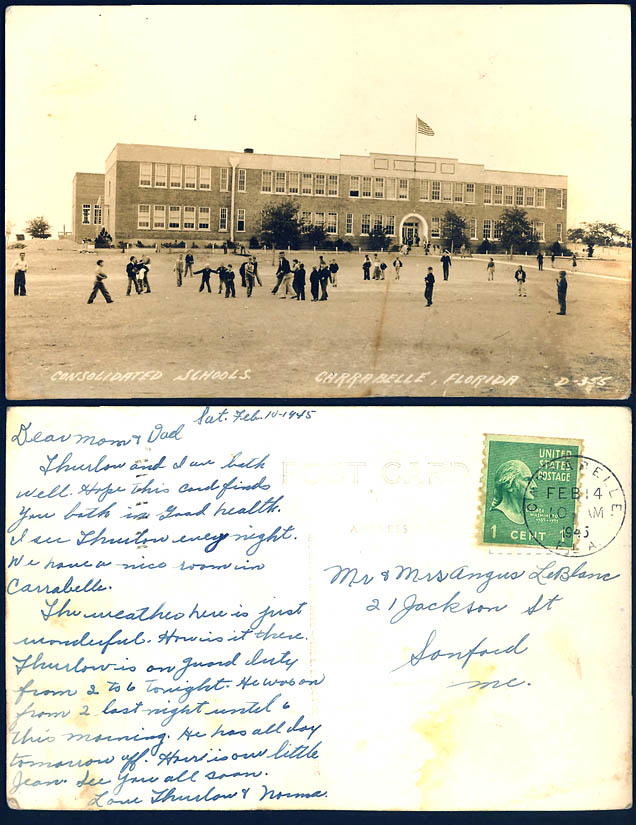 CONSOLIDATED SCHOOLS. CARRABELLE, FLORIDA D-355
Sat. Feb. 10-1945
Dear Mom & Dad
Thurlow and I are both
well. Hope this card finds
you both in good health.
I see Thurlow every night.
We have a nice room in
Carrabelle.
The weather here is just
wonderful. How is it there.
Thurlow is on guard duty
from 2 to 6 tonight. He was on
from 2 last night until 6
this morning. He has all day
tomorrow off. How is our little
Jean. See you all soon.
Love Thurlow & Norma.
POST CARD
ADDRESS
UNITED
STATES
POSTAGE
1 CENT 1
FEB 14
AM
1945
FLA
Mr & Mrs Angus LeBlanc
21 Jackson St
Sanford
Me.